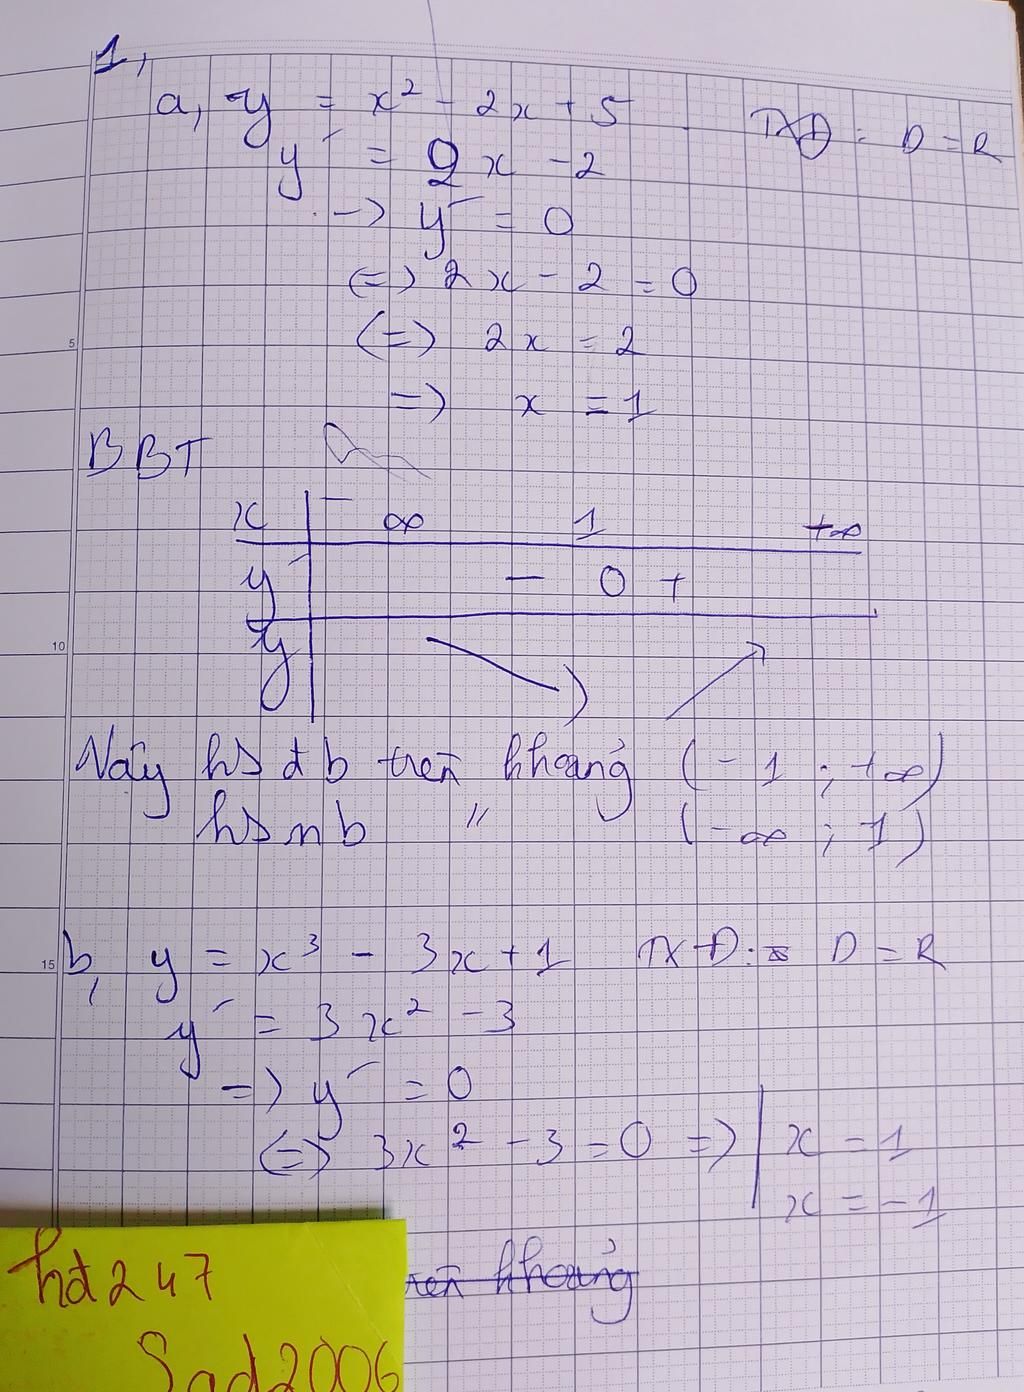 1,
a, y = x² - 2x + 5 TXĐ : D = R
y' = 2x - 2
-> y' = 0
<=> 2x - 2 = 0
<=> 2x = 2
=> x = 1
BBT
x -∞ 1 +∞
y' - 0 +
y
Vậy hs đb trên khoảng (-1 ; +∞)
hs nb " (-∞ ; 1)
b, y = x³ - 3x + 1 TXĐ : D = R
y' = 3x² - 3
=> y' = 0
<=> 3x² - 3 = 0 => x = 1
x = -1
trên khoảng
hđ247
Sad2006
5
10
15